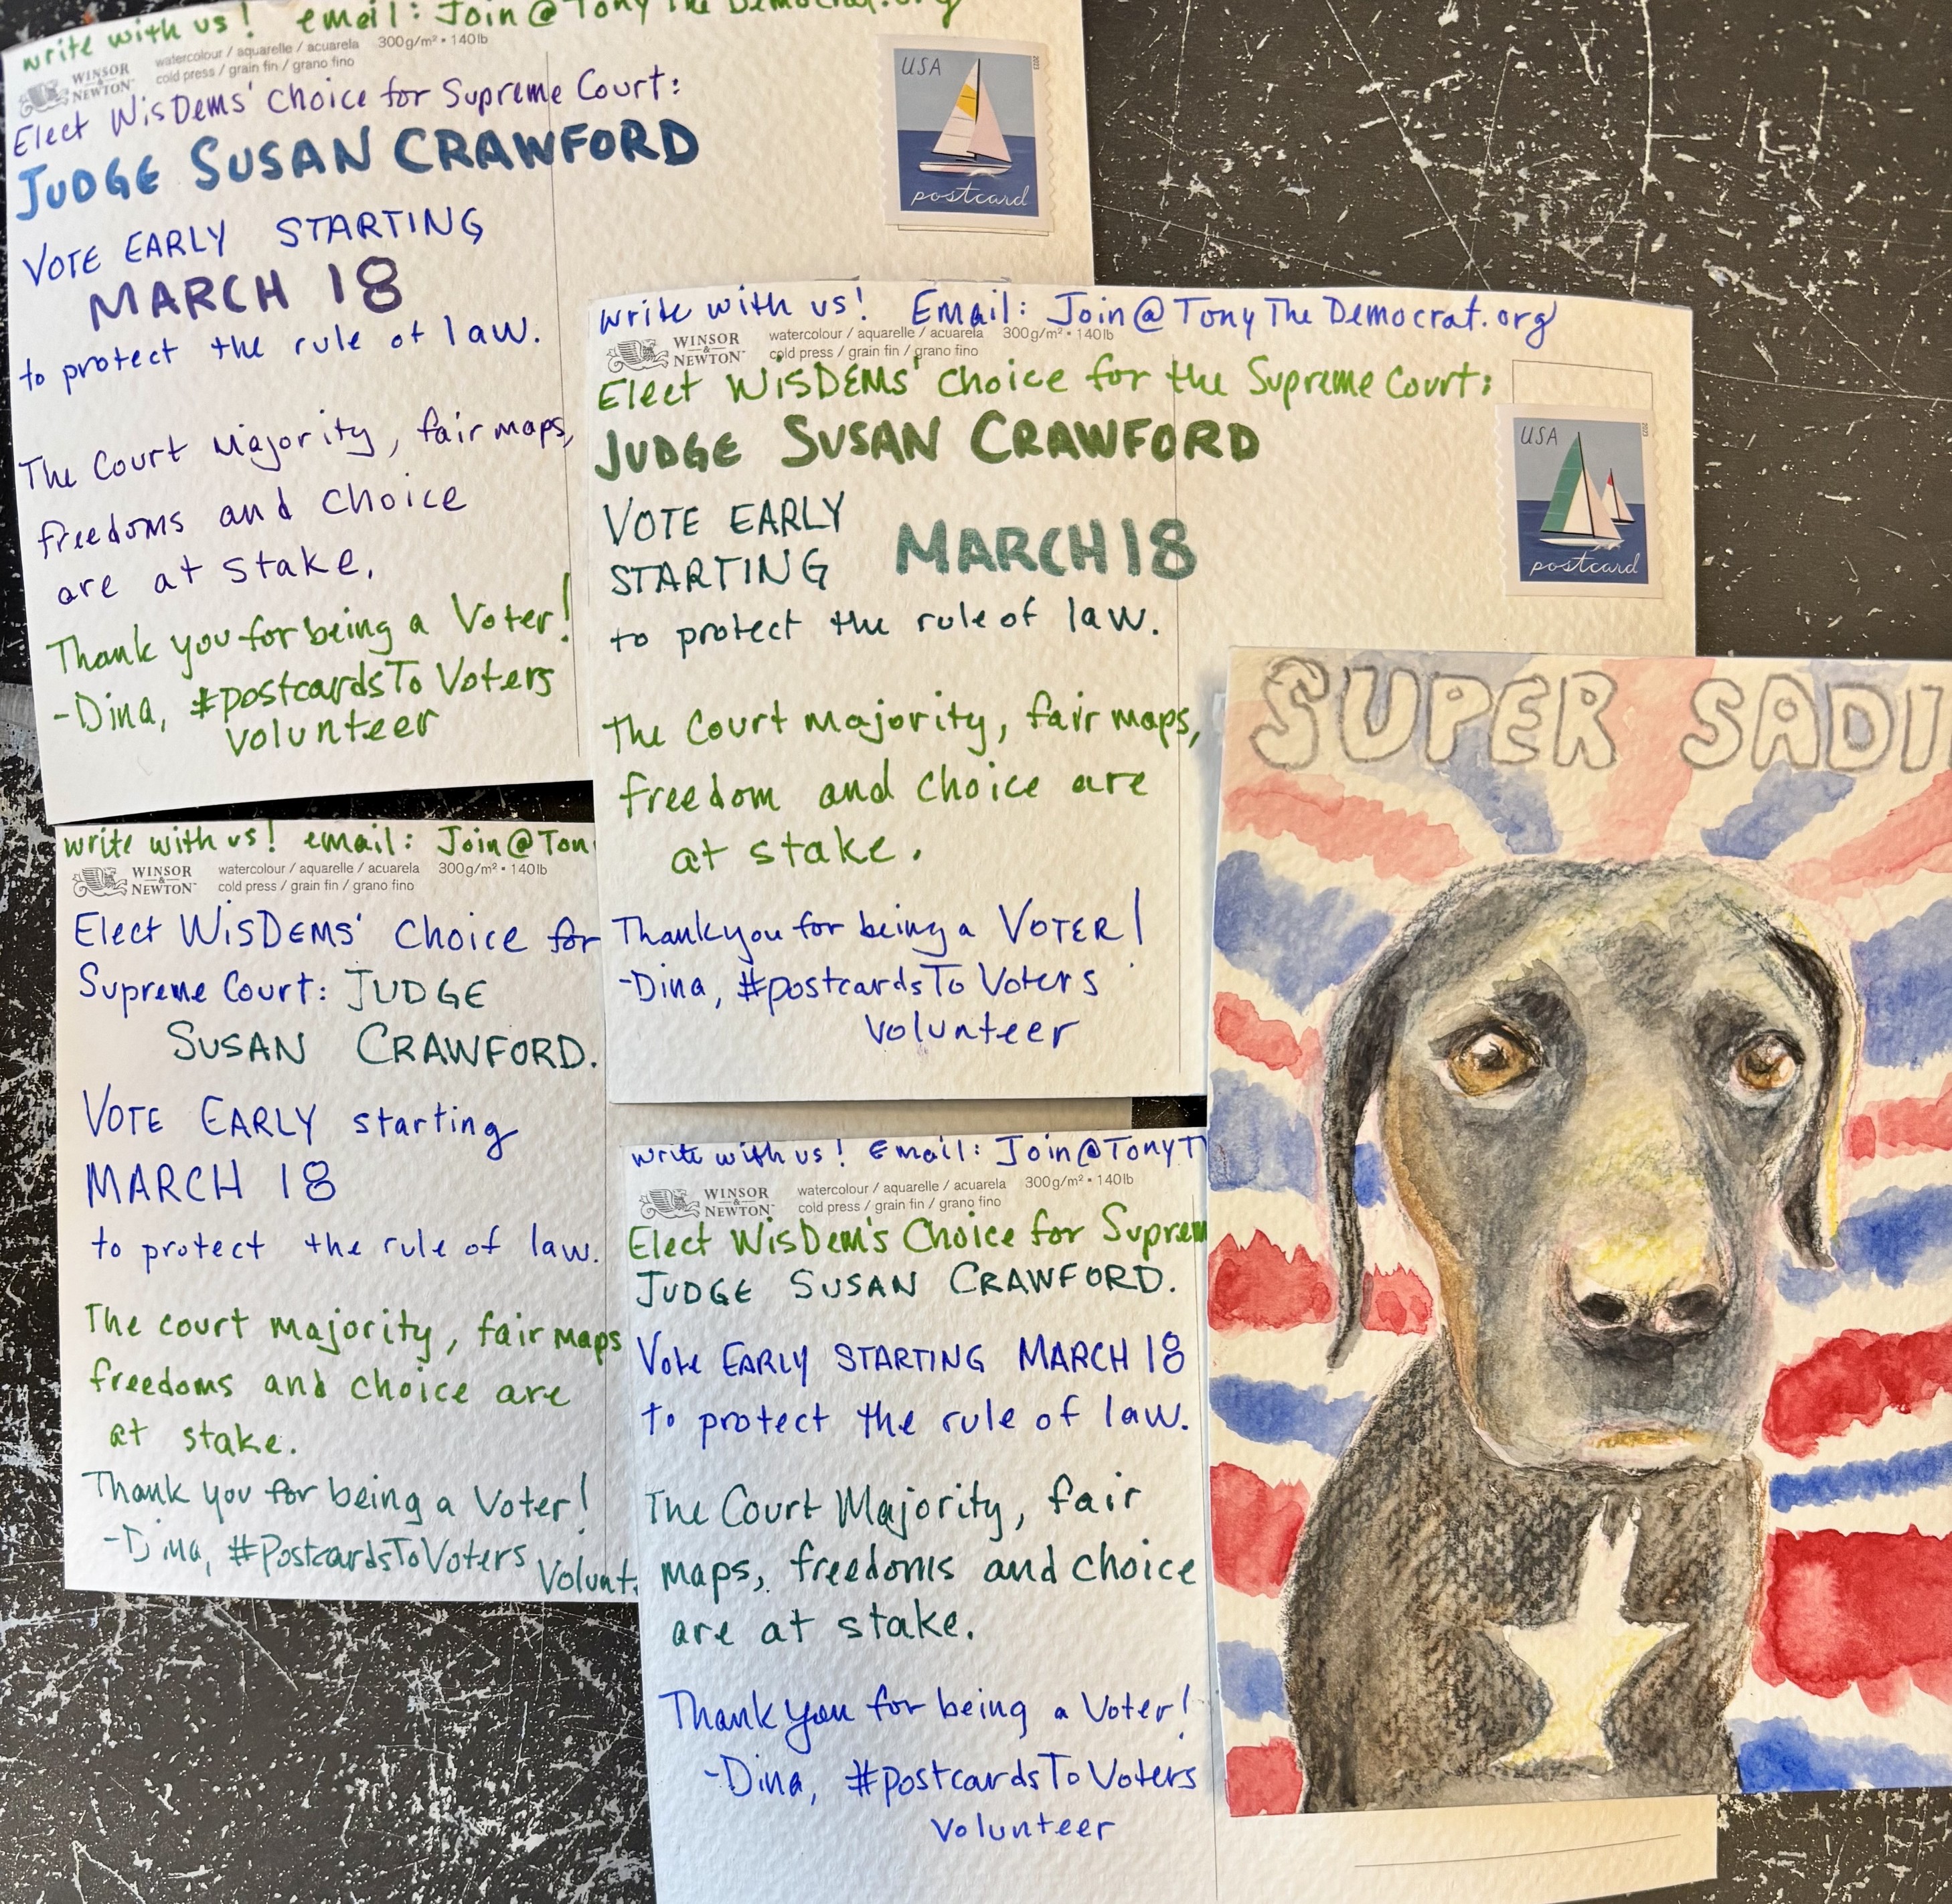 write with us! email: Join@TonyTheDemocrat.org
WINSOR & NEWTON
watercolour / aquarelle / acuarela 300g/m² • 140lb
cold press / grain fin / grano fino
Elect WisDems' choice for Supreme Court:
JUDGE SUSAN CRAWFORD
VOTE EARLY STARTING
MARCH 18
to protect the rule of law.
The Court Majority, fair maps,
freedoms and choice
are at stake.
Thank you for being a Voter!
-Dina, #postcardsTo Voters
volunteer
USA
2023
postcard
write with us! Email: Join@TonyTheDemocrat.org
WINSOR & NEWTON
watercolour / aquarelle / acuarela 300g/m² • 140lb
cold press / grain fin / grano fino
Elect WISDEMS' choice for the Supreme Court:
JUDGE SUSAN CRAWFORD
VOTE EARLY
STARTING MARCH 18
to protect the rule of law.
The Court majority, fair maps,
freedom and choice are
at stake.
Thank you for being a VOTER!
-Dina, #postcardsTo Voters
volunteer
USA
2023
postcard
write with us! email: Join@Ton
WINSOR & NEWTON
watercolour / aquarelle / acuarela 300g/m² • 140lb
cold press / grain fin / grano fino
Elect WISDEMS' choice for
Supreme Court: JUDGE
SUSAN CRAWFORD.
VOTE EARLY starting
MARCH 18
to protect the rule of law.
The court majority, fair maps
freedoms and choice are
at stake.
Thank you for being a Voter!
-Dina, #PostcardsToVoters
Volunt
write with us! Email: Join@TonyT
WINSOR & NEWTON
watercolour / aquarelle / acuarela 300g/m² • 140lb
cold press / grain fino / grano fino
Elect WisDem's Choice for Suprem
JUDGE SUSAN CRAWFORD.
Vote EARLY STARTING MARCH 18
to protect the rule of law.
The Court Majority, fair
maps, freedoms and choice
are at stake.
Thank you for being a Voter!
-Dina, #postcardsToVoters
volunteer
SUPER SADI